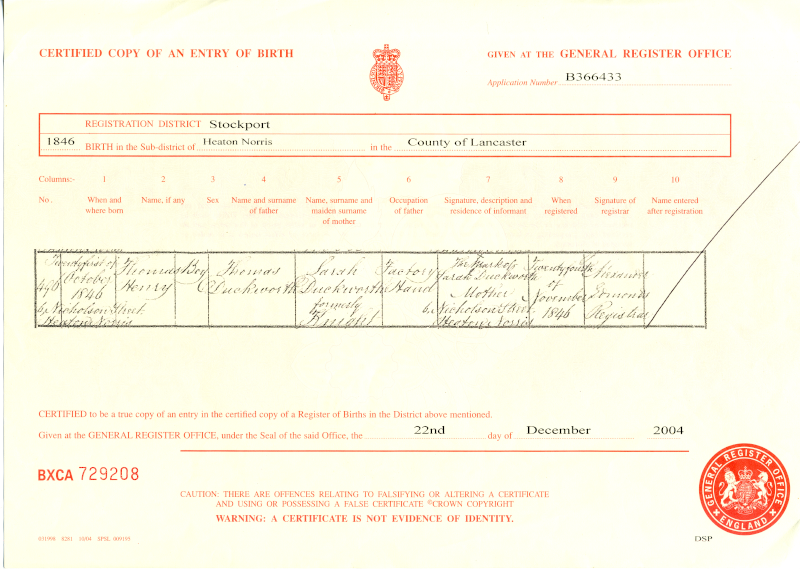 CERTIFIED COPY OF AN ENTRY OF BIRTH
GIVEN AT THE GENERAL REGISTER OFFICE
Application Number B366433
REGISTRATION DISTRICT Stockport
1846 BIRTH in the Sub-district of Heaton Norris in the County of Lancaster
Columns:- 1 2 3 4 5 6 7 8 9 10
No. When and where born Name, if any Sex Name and surname of father Name, surname and maiden surname of mother Occupation of father Signature, description and residence of informant When registered Signature of registrar Name entered after registration
Twentyfirst of October 1846 6, Nicholson Street Heaton Norris
Thomas Henry
Boy
Thomas Duckworth
Sarah Duckworth formerly Knight
Factory Hand
The Mark of Sarah Duckworth Mother 6, Nicholson Street Heaton Norris
Twenty fourth of November 1846
Registrar
CERTIFIED to be a true copy of an entry in the certified copy of a Register of Births in the District above mentioned.
Given at the GENERAL REGISTER OFFICE, under the Seal of the said Office, the 22nd day of December 2004
BXCA 729208
CAUTION: THERE ARE OFFENCES RELATING TO FALSIFYING OR ALTERING A CERTIFICATE
AND USING OR POSSESSING A FALSE CERTIFICATE ©CROWN COPYRIGHT
WARNING: A CERTIFICATE IS NOT EVIDENCE OF IDENTITY.
GENERAL REGISTER OFFICE
ENGLAND
DSP